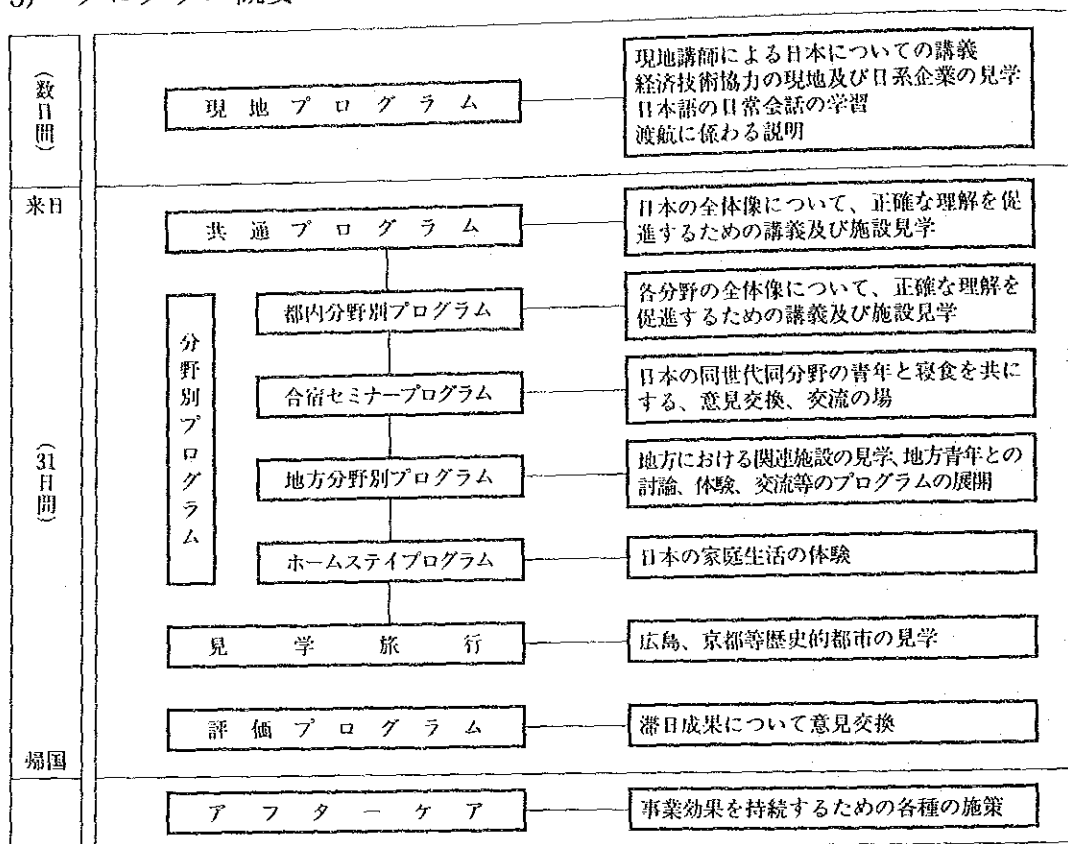 3) プログラム概要
(数日間)
現地プログラム
現地講師による日本についての講義
経済技術協力の現地及び日系企業の見学
日本語の日常会話の学習
渡航に係わる説明
来日
共通プログラム
日本の全体像について、正確な理解を促
進するための講義及び施設見学
(31日間)
分野別プログラム
都内分野別プログラム
各分野の全体像について、正確な理解を
促進するための講義及び施設見学
合宿セミナープログラム
日本の同世代同分野の青年と寝食を共に
する、意見交換、交流の場
地方分野別プログラム
地方における関連施設の見学、地方青年との
討論、体験、交流等のプログラムの展開
ホームステイプログラム
日本の家庭生活の体験
見学旅行
広島、京都等歴史的都市の見学
評価プログラム
滞日成果について意見交換
帰国
アフターケア
事業効果を持続するための各種の施策